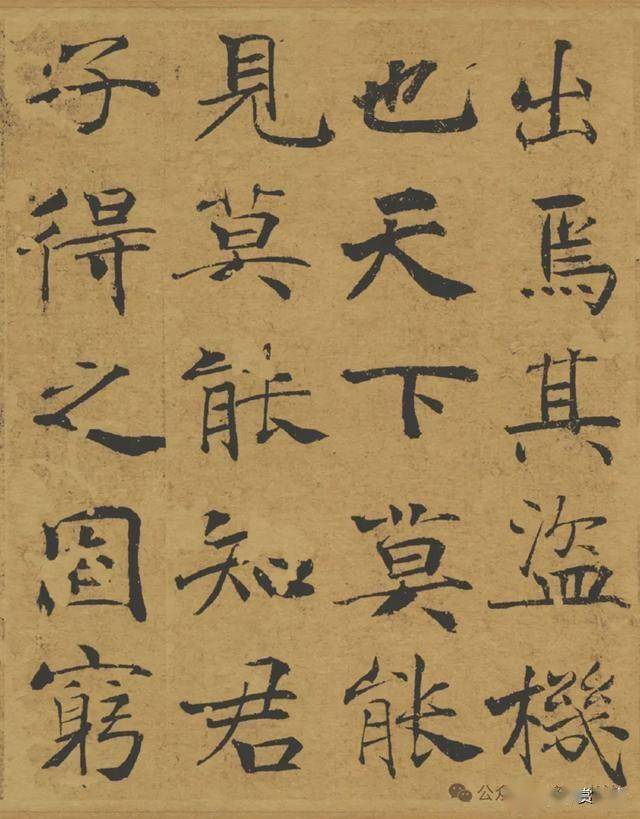 出焉其盜機
也天下莫能
見莫能知君
子得之固窮
公众
赏